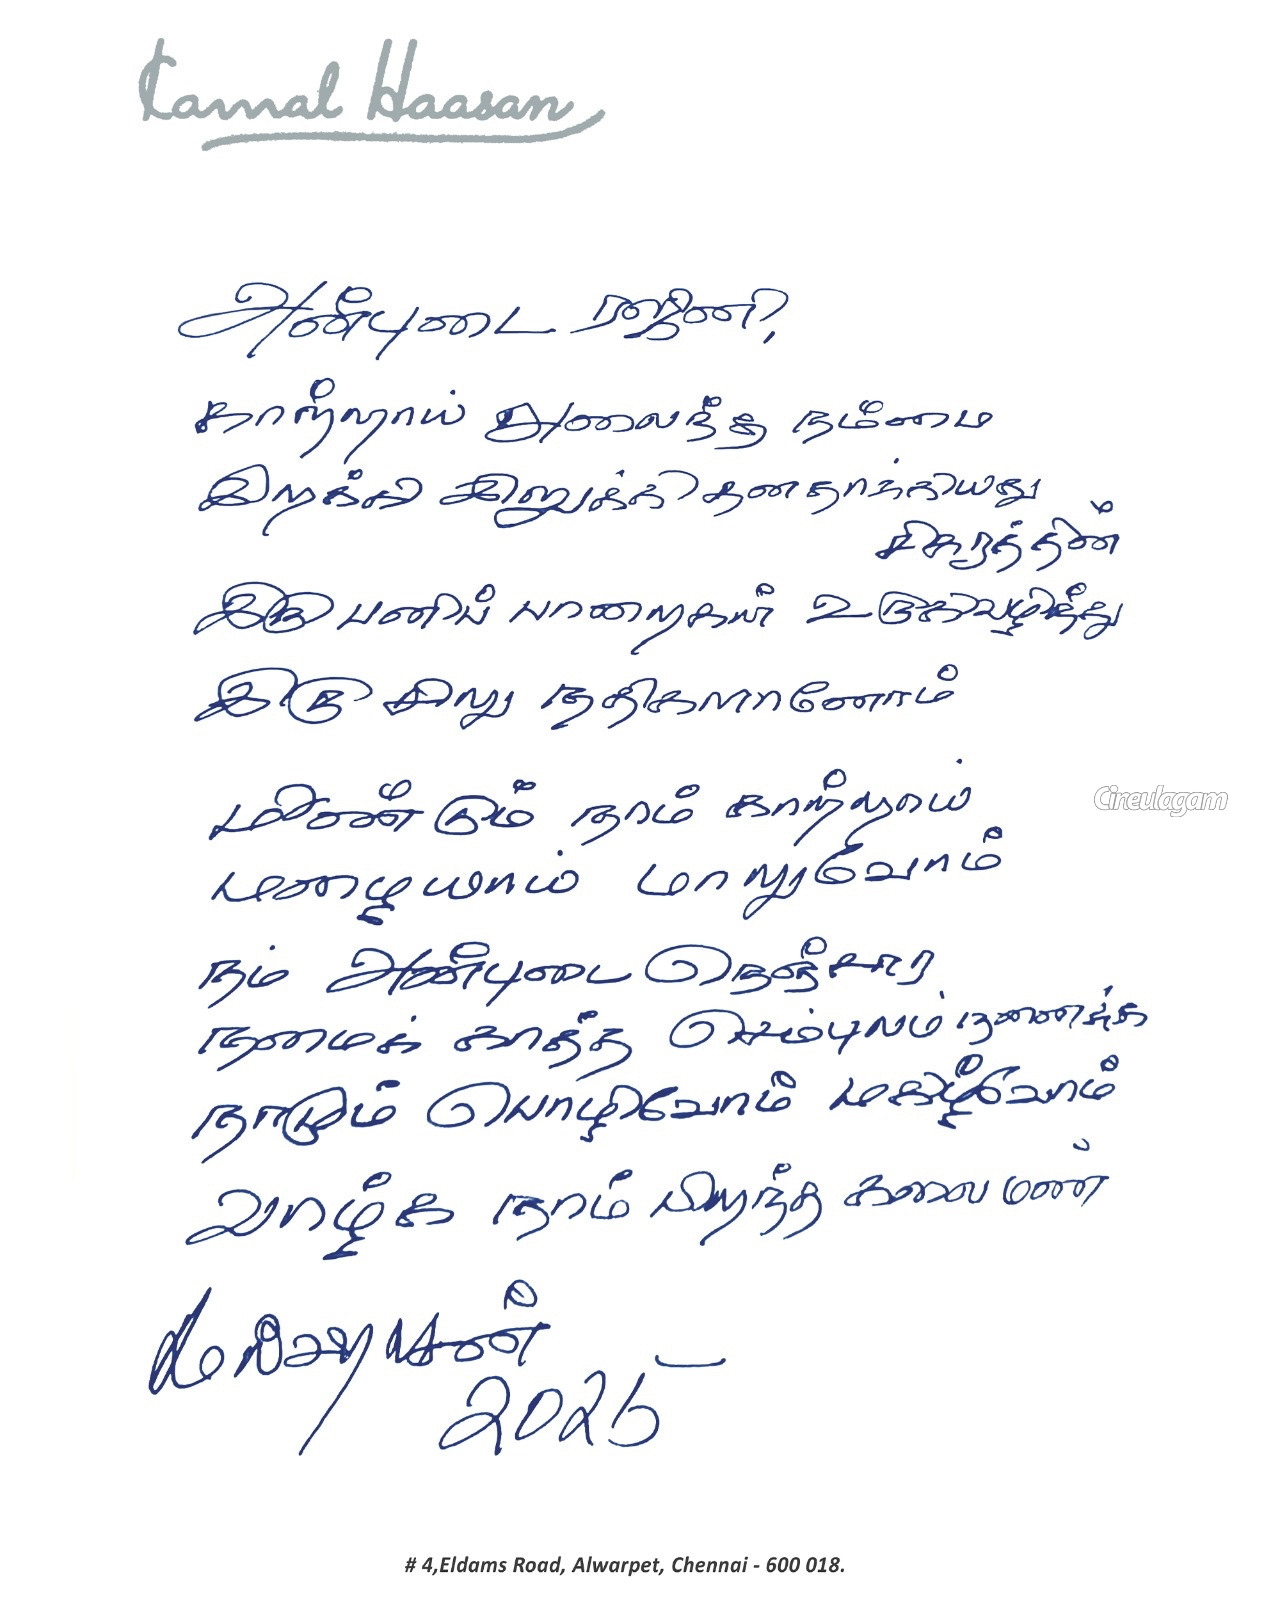 Kamal Haasan
அன்புடை ரஜினி,
காற்றாய் அலைந்த நம்மை
இறக்கி இறுக்கி தனதாக்கியது
சிகரத்தின்
இரு பனிப் பாறைகள் உருகிவழிந்து
இரு சிறு நதிகளானோம்
மீண்டும் நாம் காற்றாய்
மழையாய் மாறுவோம்
நம் அன்புடை நெஞ்சார
நமைக் காத்த செம்புலம் நனைக்க
நாடும் பொழிவோம் மகிழ்வோம்
வாழ்க நாம் பிறந்த கலை மண்
Cineulagam
2025
# 4,Eldams Road, Alwarpet, Chennai - 600 018.